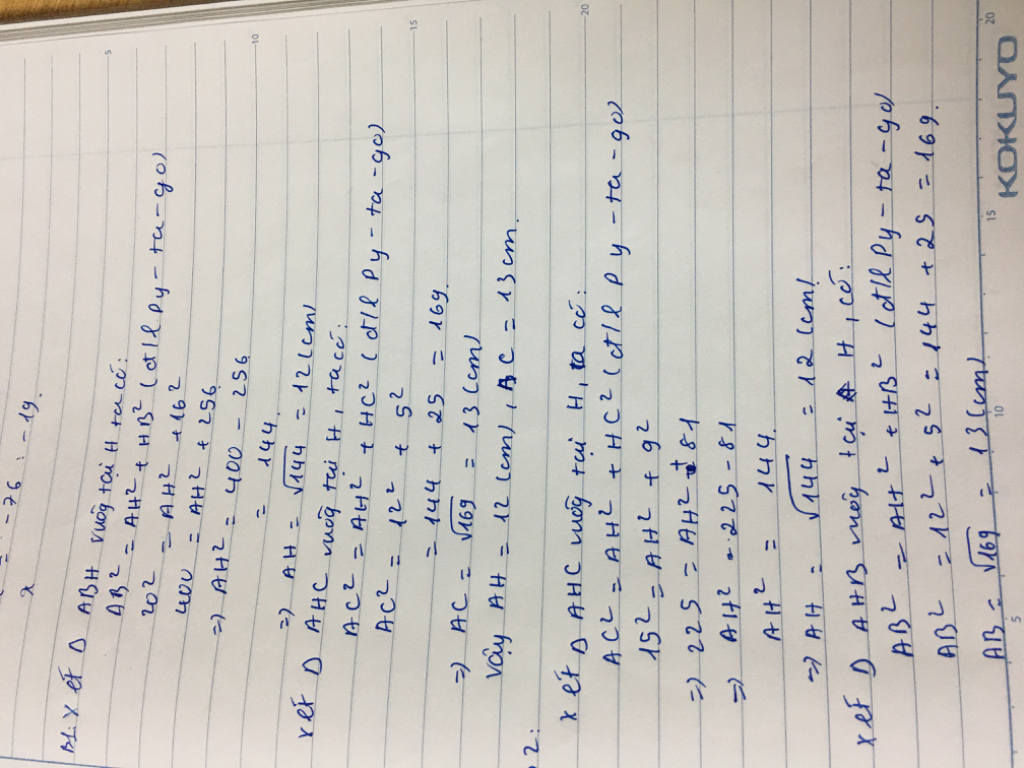 = - 76 : - 19.
x
B1: xét Δ ABH vuông tại H ta có:
AB² = AH² + HB² (đ/l Py-ta-go)
20² = AH² + 16²
400 = AH² + 256
=> AH² = 400 - 256
= 144
=> AH = √144 = 12 (cm)
xét Δ AHC vuông tại H, ta có:
AC² = AH² + HC² (đ/l Py-ta-go)
AC² = 12² + 5²
= 144 + 25 = 169
=> AC = √169 = 13 (cm)
Vậy AH = 12 (cm), AC = 13 cm.
2:
xét Δ AHC vuông tại H, ta có:
AC² = AH² + HC² (đ/l Py-ta-go)
15² = AH² + 9²
=> 225 = AH² + 81
=> AH² = 225 - 81
AH² = 144.
=> AH = √144 = 12 (cm)
xét Δ AHB vuông tại H, có:
AB² = AH² + HB² (đ/l Py-ta-go)
AB² = 12² + 5² = 144 + 25 = 169.
AB = √169 = 13 (cm)
5 10 15 20
5 10 15 20
KOKUYO